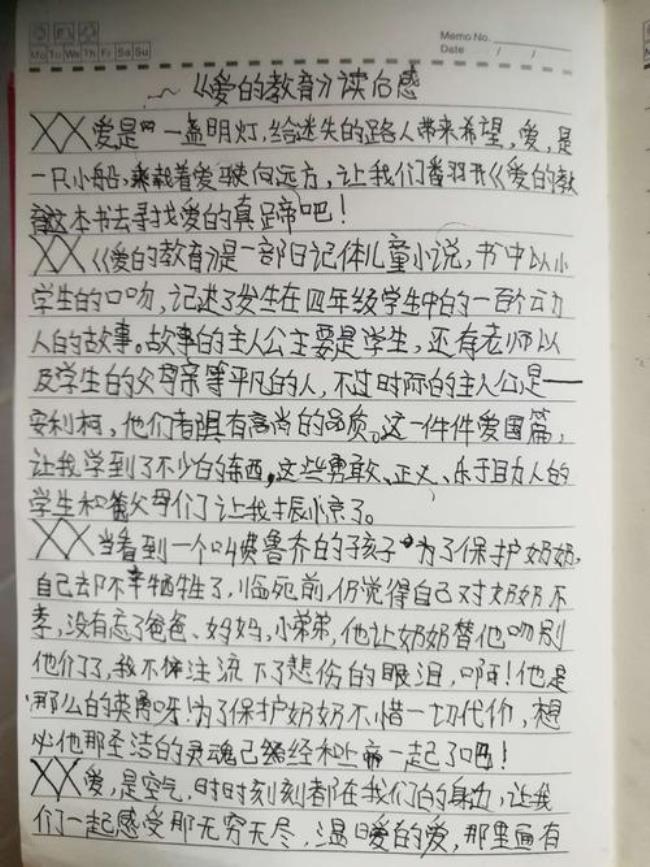 Mo Tu We Th Fr Sa Su
Memo No.
Date / /
《爱的教育》读后感
爱是一盏明灯,给迷失的路人带来希望,爱,是
一只小船,乘载着爱驶向远方,让我们番羽开《爱的教
育》这本书去寻找爱的真蹄吧!
《爱的教育》是一部日记体儿童小说,书中以小
学生的口吻,记述了发生在四年级学生中的一百个动
人的故事。故事的主人公主要是学生,还有老师以
及学生的父母亲等平凡的人,不过时际的主人公是——
安利柯,他们都具有高尚的品质。这一件件爱国篇,
让我学到了不少的东西,这些勇敢、正义、乐于助人的
学生和父母们了让我振惊了。
当看到一个叫费鲁乔的孩子为了保护奶奶,
自己却不幸牺牲了,临死前,仍觉得自己对奶奶不
孝,没有忘了爸爸、妈妈,小弟弟,他让奶奶替他吻别
他们了,我不住流下了悲伤的眼泪,啊!他是
那么的英勇呀!为了保护奶奶不惜一切代价,想
必他那圣洁的灵魂已经和上帝一起了吧!
爱,是空气,时时刻刻都在我们的身边,让我
们一起感受那无穷无尽,温暖的爱,那里面有